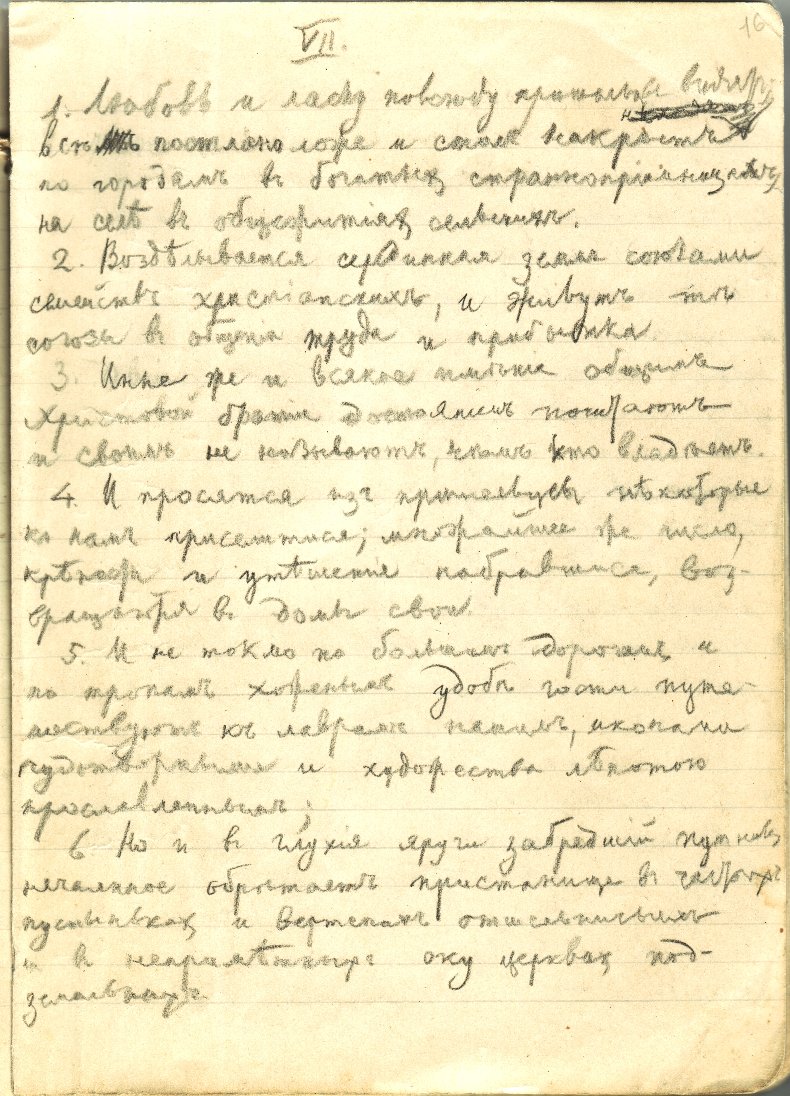 16
VII.
1. Любовь и ласку повсюду пришельцы видятъ;
всѣмъ постлано ложе и столъ накрытъ
по городамъ въ богатыхъ страннопріимницахъ,
на селѣ въ общежитіяхъ сельскихъ.
2. Воздѣлывается срединная земля союзами
семействъ христіанскихъ, и живутъ тѣ
союзы въ общинѣ труда и прибытка.
3. Иные же и всякое имѣніе общимъ
Христовой братіи достояніемъ почитаютъ
и своимъ не называютъ, чѣмъ кто владѣетъ.
4. И просятся изъ пришельцевъ нѣкоторые
къ намъ приселиться; множайшее же число,
крѣпости и утѣшенія набравшися, воз-
вращаются въ домы свои.
5. И не токмо по большимъ дорогамъ и
по тропамъ хоженымъ удобь гости путе-
шествуютъ къ лаврамъ нашимъ, иконами
чудотворными и художества лѣпотою
прославленнымъ;
6 Но и въ глухія яруги забредшій путникъ
нечаянное обрѣтаетъ пристанище въ
пустынькахъ и вертепахъ отшельничьихъ
и въ непримѣтныхъ оку церквахъ под-
земельныхъ.